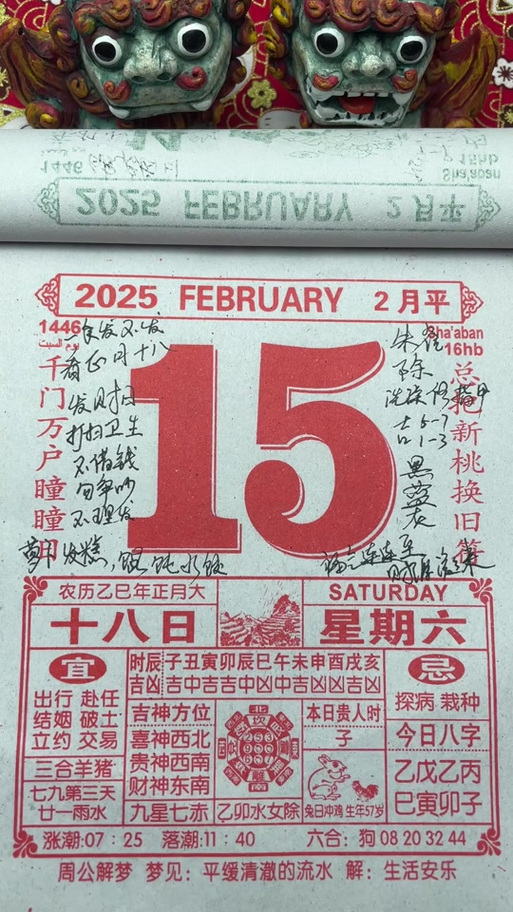 2025 FEBRUARY 2月平
1446
Sha'aban
15hb
2025 FEBRUARY 2月平
1446
يوم السبت
Sha'aban
16hb
15
千门万户瞳瞳日
总把新桃换旧符
一年发不发
看正月十八
发财日
打扫卫生
不借钱
勿争吵
不理发
朱
除
洗
吉 5-7
1-3
黑
衣
萝卜 发糕,
福气连连至
农历乙巳年正月大
SATURDAY
十八日
星期六
宜
出行 赴任
结姻 破土
立约 交易
三合羊猪
七九第三天
廿一雨水
时辰 子丑寅卯辰巳午未申酉戌亥
吉凶 吉中吉吉中凶中吉凶凶吉凶
吉神方位
喜神西北
贵神西南
财神东南
九星七赤
乙卯水女除
本日贵人时
子
兔日冲鸡 生年57岁
忌
探病 栽种
今日八字
乙戊乙丙
巳寅卯子
涨潮:07:25 落潮:11:40 六合:狗 08 20 32 44
周公解梦 梦见:平缓清澈的流水 解:生活安乐